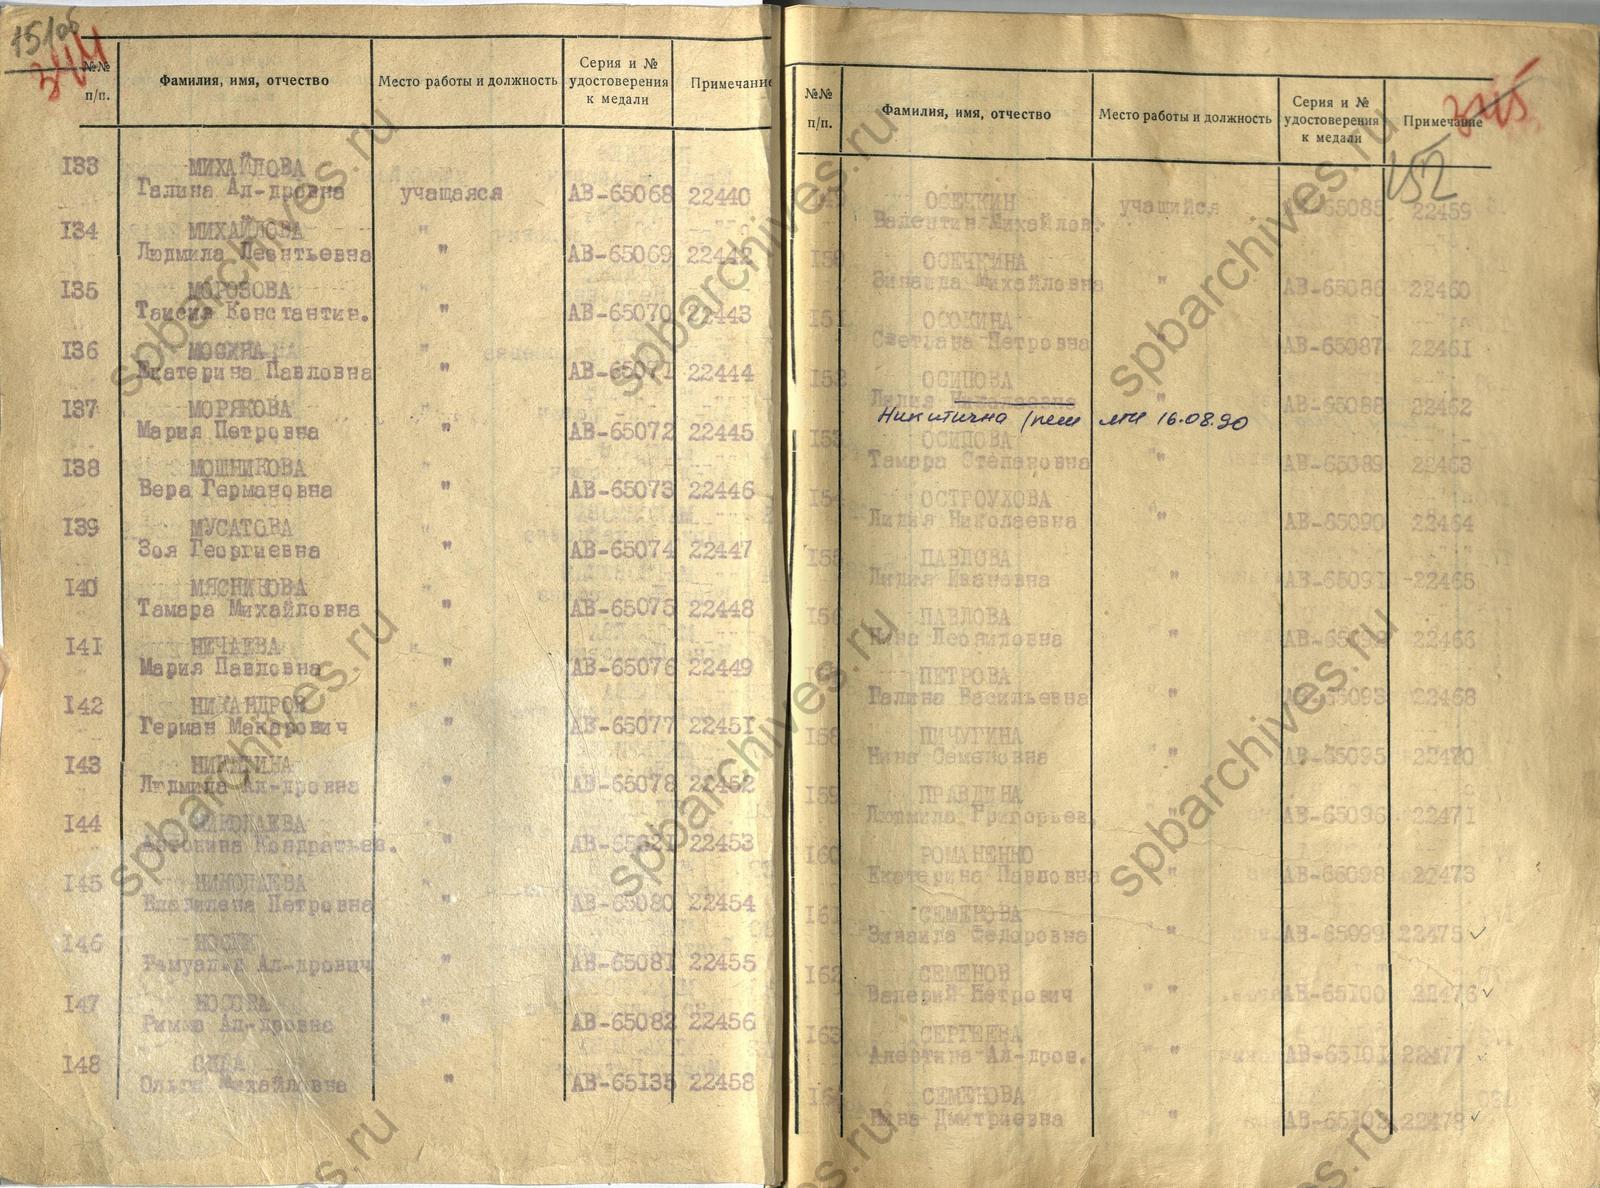 15об
344
№№ п/п. Фамилия, имя, отчество Место работы и должность Серия и № удостоверения к медали Примечание
133 МИХАЙЛОВА
Галина Ал-дровна учащаяся АВ-65068 22440
134 МИХАЙЛОВА "
Людмила Леонтьевна " АВ-65069 22442
135 МОРОЗОВА "
Таисия Константин. " АВ-65070 22443
136 МОСИНА "
Екатерина Павловна " АВ-65071 22444
137 МОРЯКОВА "
Мария Петровна " АВ-65072 22445
138 МОШНИКОВА "
Вера Германовна " АВ-65073 22446
139 МУСАТОВА "
Зоя Георгиевна " АВ-65074 22447
140 МЯСНИКОВА "
Тамара Михайловна " АВ-65075 22448
141 НИЧАЕВА "
Мария Павловна " АВ-65076 22449
142 НИКАНДРОВ "
Герман Макарович " АВ-65077 22451
143 НИКИТИНА "
Людмила Ал-дровна " АВ-65078 22452
144 НИКОЛАЕВА "
Антонина Кондратьев. " 22453
145 НИКОЛАЕВА "
Владилена Петровна " АВ-65080 22454
146 НОСИК "
Ромуальд Ал-дрович " АВ-65081 22455
147 НОСОВА "
Римма Ал-дровна " АВ-65082 22456
148
Ольга Михайловна " АВ-65135 22458
№№ п/п. Фамилия, имя, отчество Место работы и должность Серия и № удостоверения к медали Примечание
152
149 ОСЕЧКИН учащийся АВ-65085 22459
Валентин Михайлов.
150 ОСЕЧКИНА
Зинаида Михайловна " АВ-65086 22460
151 ОСОКИНА
Светлана Петровна " АВ-65087 22461
152 ОСИПОВА
Лидия Николаевна АВ-65088 22462
Никитична 16.08.90
153 ОСИПОВА
Тамара Степановна " АВ-65089 22463
154 ОСТРОУХОВА
Лидия Николаевна " АВ-65090 22464
155 ПАВЛОВА
Лидия Ивановна " АВ-65091 22465
156 ПАВЛОВА
Нина Леонидовна " 22466
ПЕТРОВА
Галина Васильевна " АВ-65093 22468
158 ПИЧУГИНА
Нина Семеновна " " АВ-65095 22470
159 ПРАВДИНА
Людмила Григорьев. " " АВ-65096 22471
160 РОМАНЕНКО
Екатерина Павловна " 22473
161 СЕМЕНОВА
Зинаида Федоровна " АВ-65099 22475 ✓
162 СЕМЕНОВ
Валерий Петрович " " АВ-65100 22476 ✓
163 СЕРГЕЕВА
Алевтина Ал-дров. " " АВ-65101 22477 ✓
164 СЕМЕНОВА
Нина Дмитриевна " " АВ-65102 22478 ✓
spbarchives.ru
spbarchives.ru
spbarchives.ru
spbarchives.ru
spbarchives.ru
spbarchives.ru